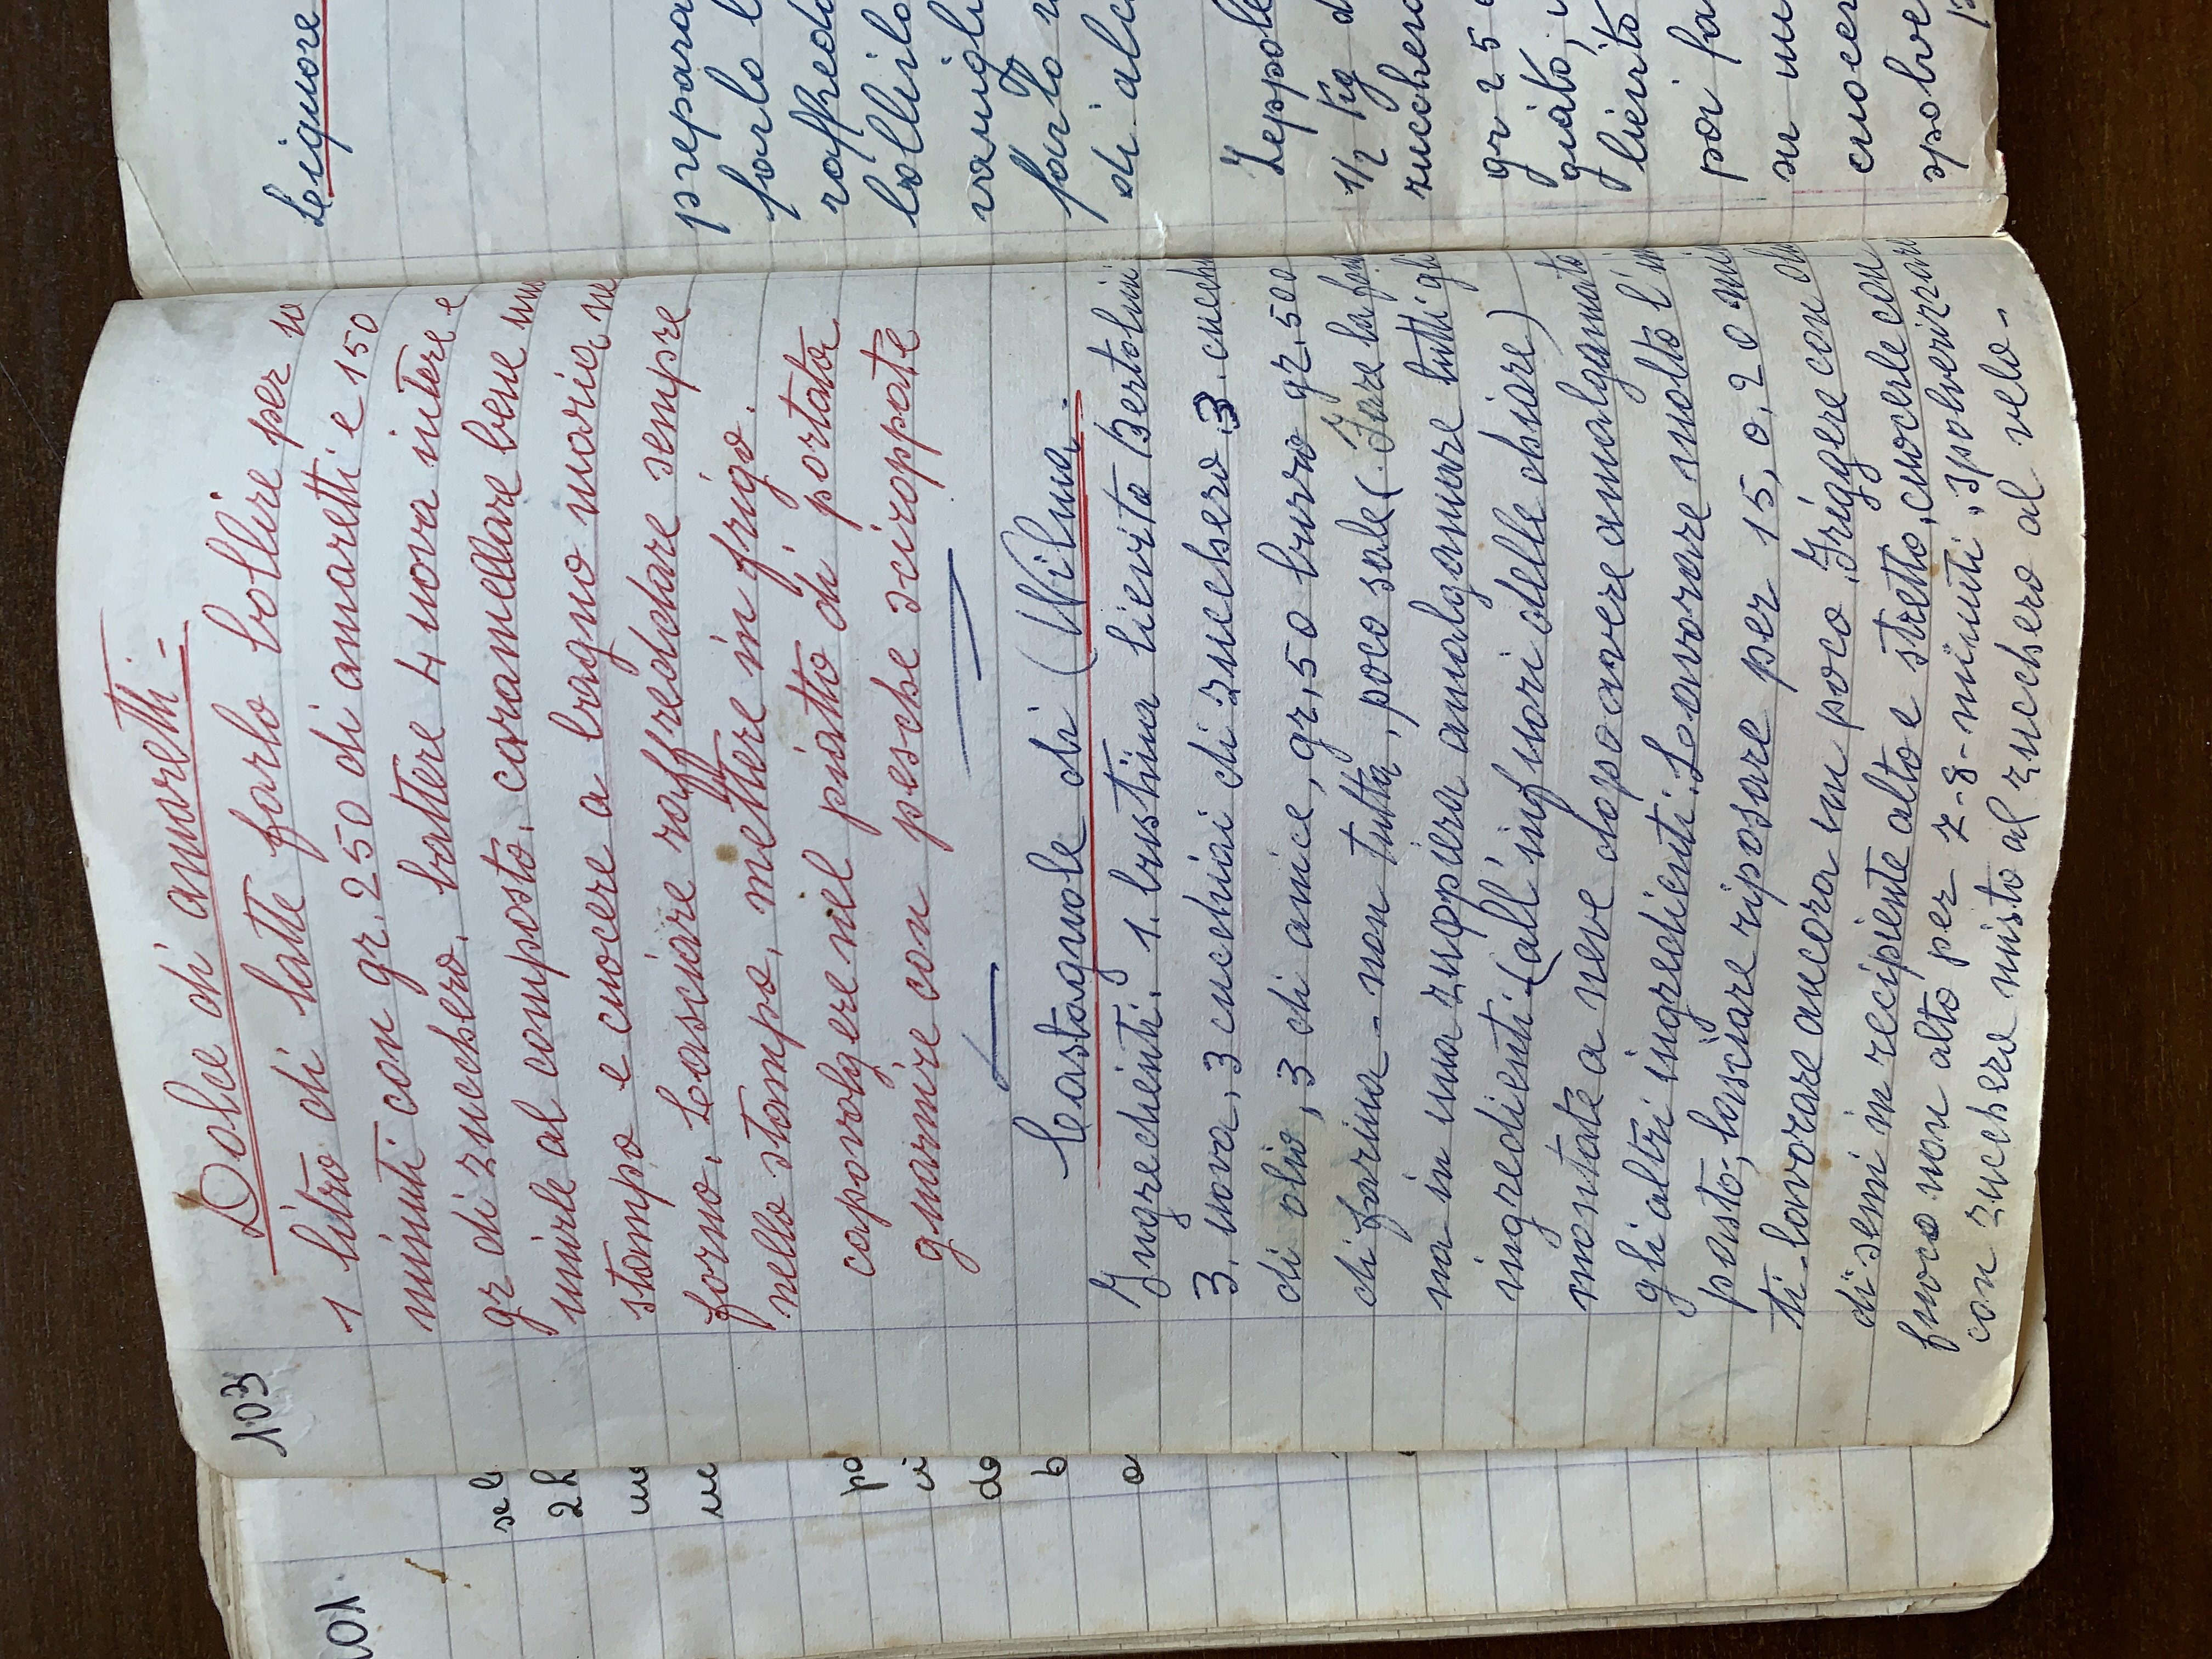 101.
se l
2 h
po
vi
do
b
103
Dolce di amaretti -
1 litro di latte farlo bollire per 10
minuti con gr. 250 di amaretti e 150
gr di zucchero, battere 4 uova intere e
unirle al composto, caramellare bene uno
stampo e cuocere a bagno maria ne
forno, Lasciare raffreddare sempre
nello stampo, mettere in frigo.
capovolgere nel piatto di portata
guarnire con pesche sciroppate
Castagnole di (Wilma -
Ingredienti. 1. bustina lievito Bertolini
3. uova, 3 cucchiai di zucchero, 3. cucch
di olio, 3 di anice, gr, 50 burro gr, 500
di farina - non tutta, poco sale (. Fare la fon
na in una zuppiera amalgamare tutti gli
ingredienti - (all'infuori delle chiare)
montate a neve dopo avere amalgamato
gli altri ingredienti. Lavorare molto l'im
pasto, lasciare riposare per 15, o, 20 min
ti - lavorare ancora un poco, Friggere con olio
di semi in recipiente alto e stretto, cuocerle con
fuoco non alto per 7-8- minuti, spolverizzare
con zucchero misto al zucchero al velo -
Liquore
prepara
farlo b
raffredd
bollirlo
vanigli
farlo r
di alc
Zeppole
1/2 Kg d
zucchero
gr 25
giato, u
lievito
poi fa
su un
cuocer
spolve